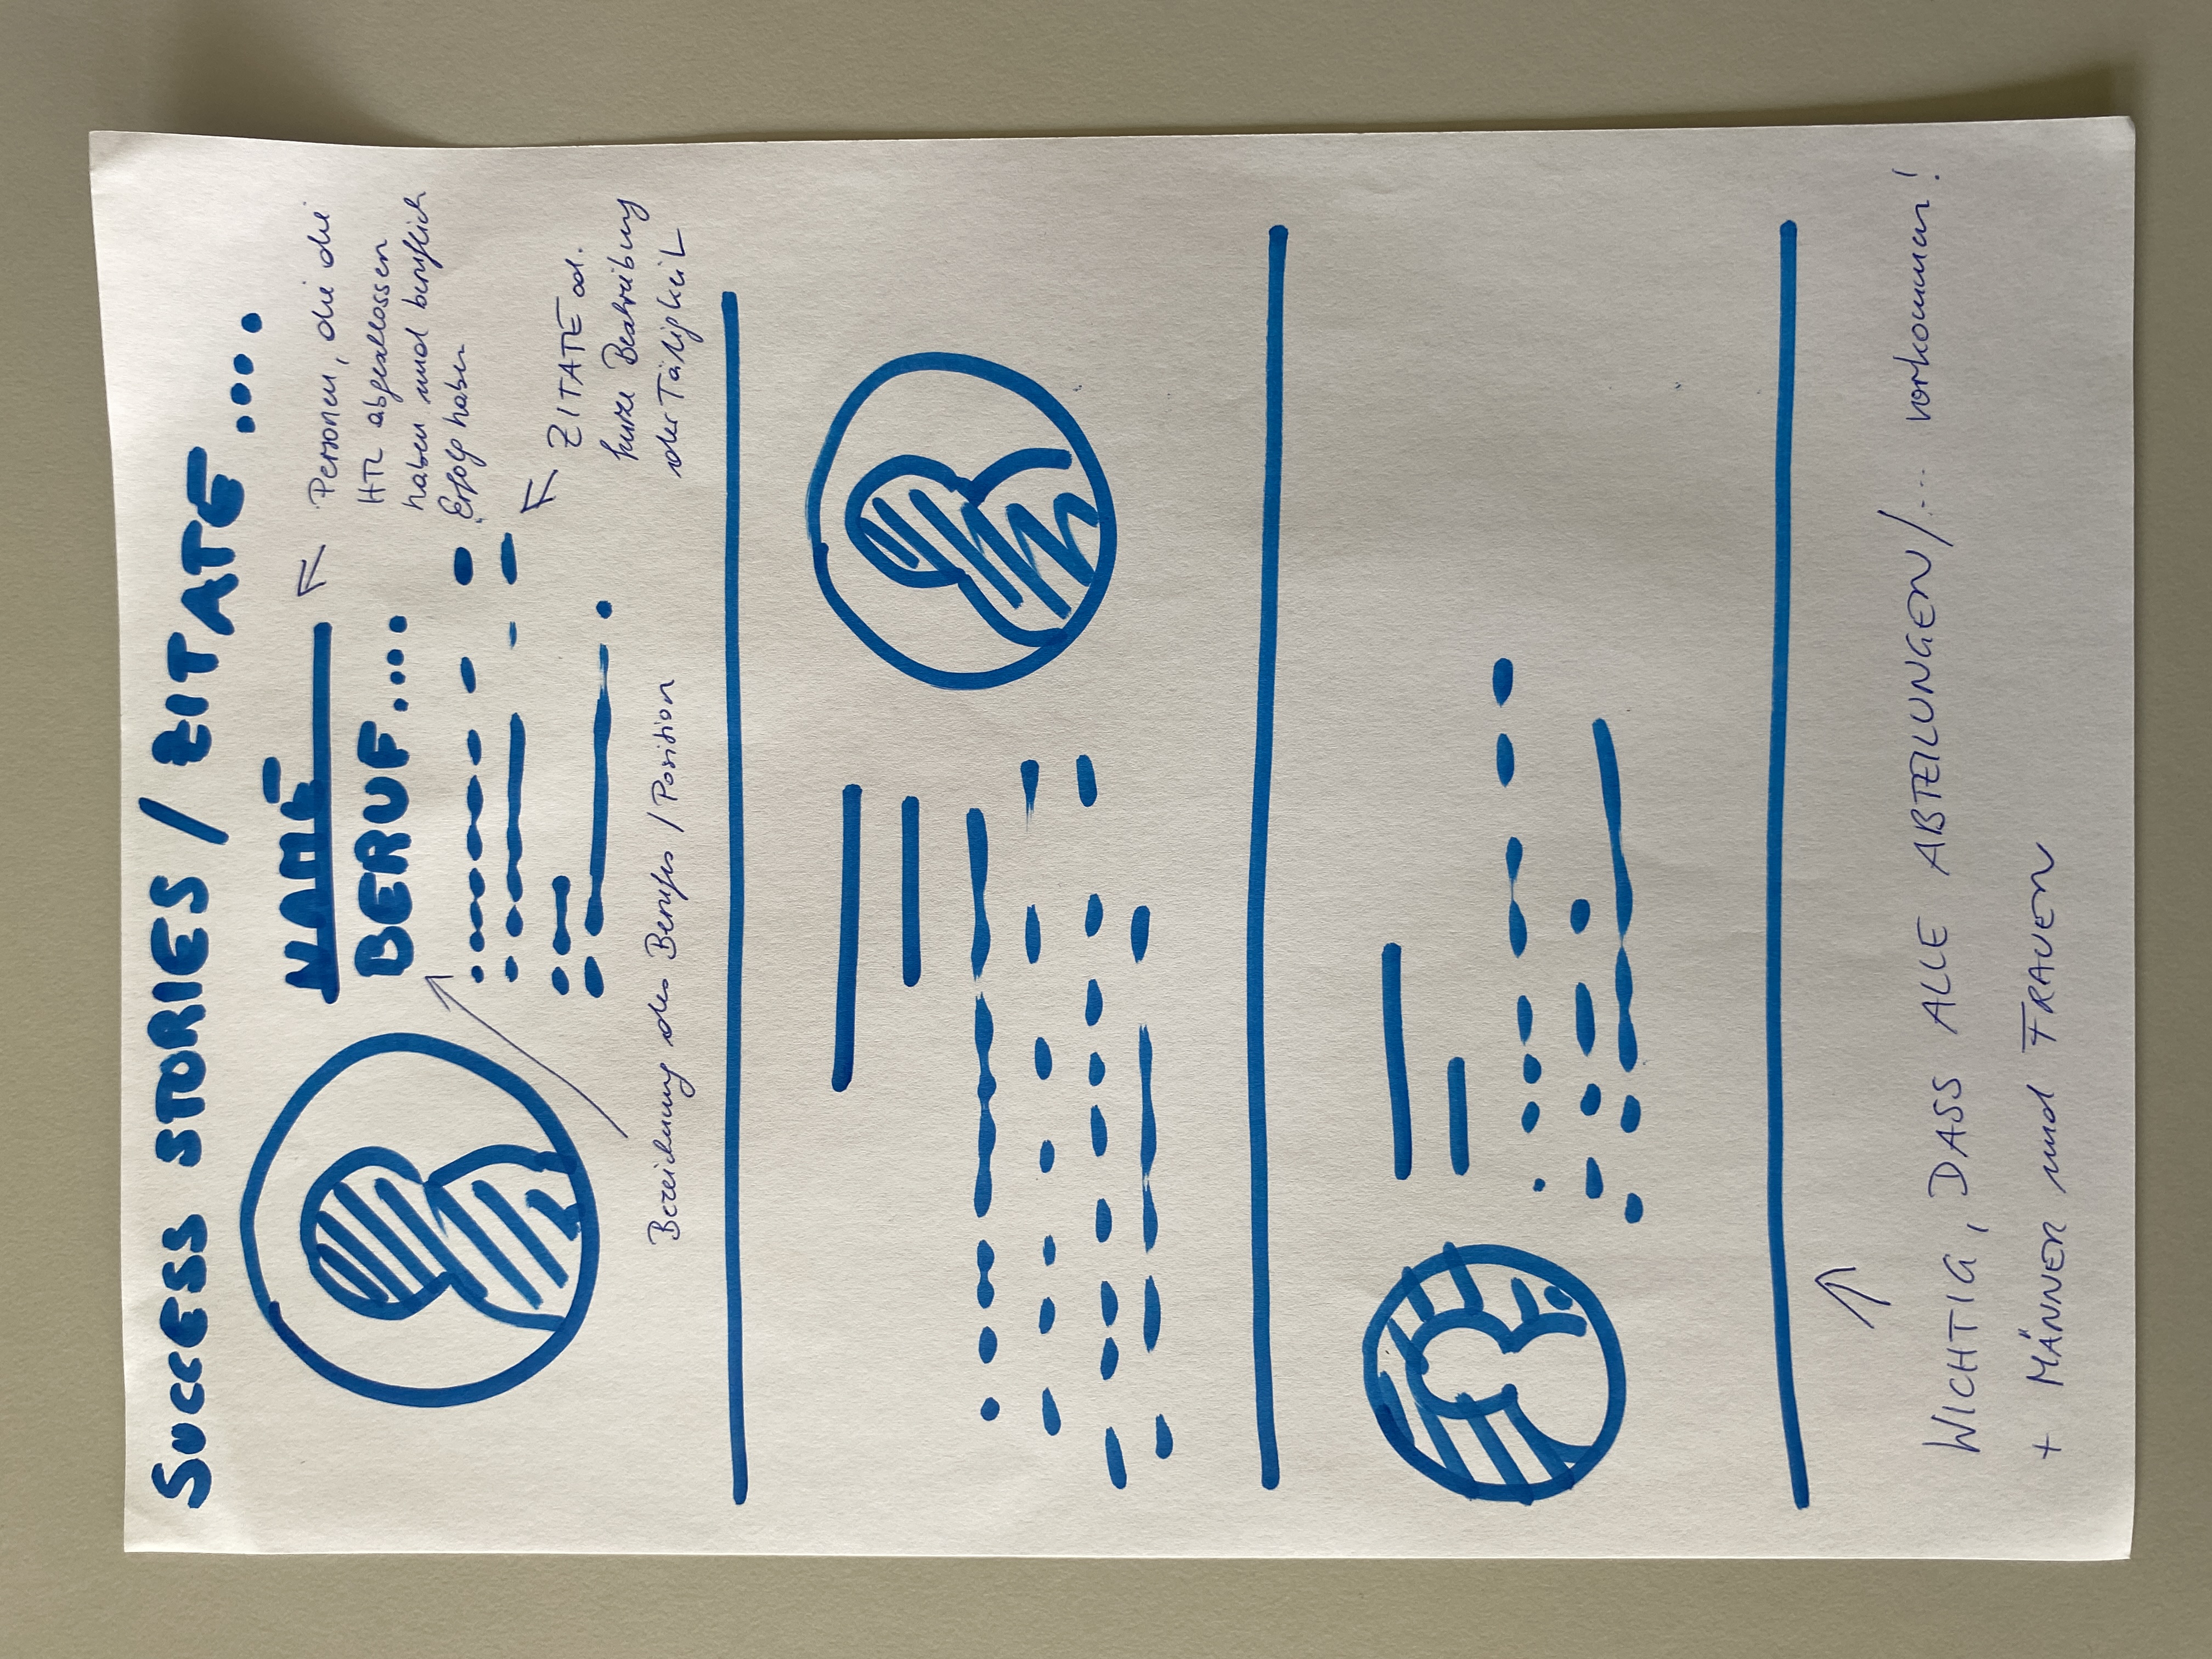 SUCCESS STORIES / ZITATE ....
NAME
BERUF....
Personen, die die
HTL abgeschlossen
haben und beruflich
Erfolg haben
ZITATE od.
kurze Beschreibung
der Tätigkeit
Bezeichnung des Berufes / Position
WICHTIG, DASS ALLE ABTEILUNGEN/... vorkommen!
+ MÄNNER und FRAUEN